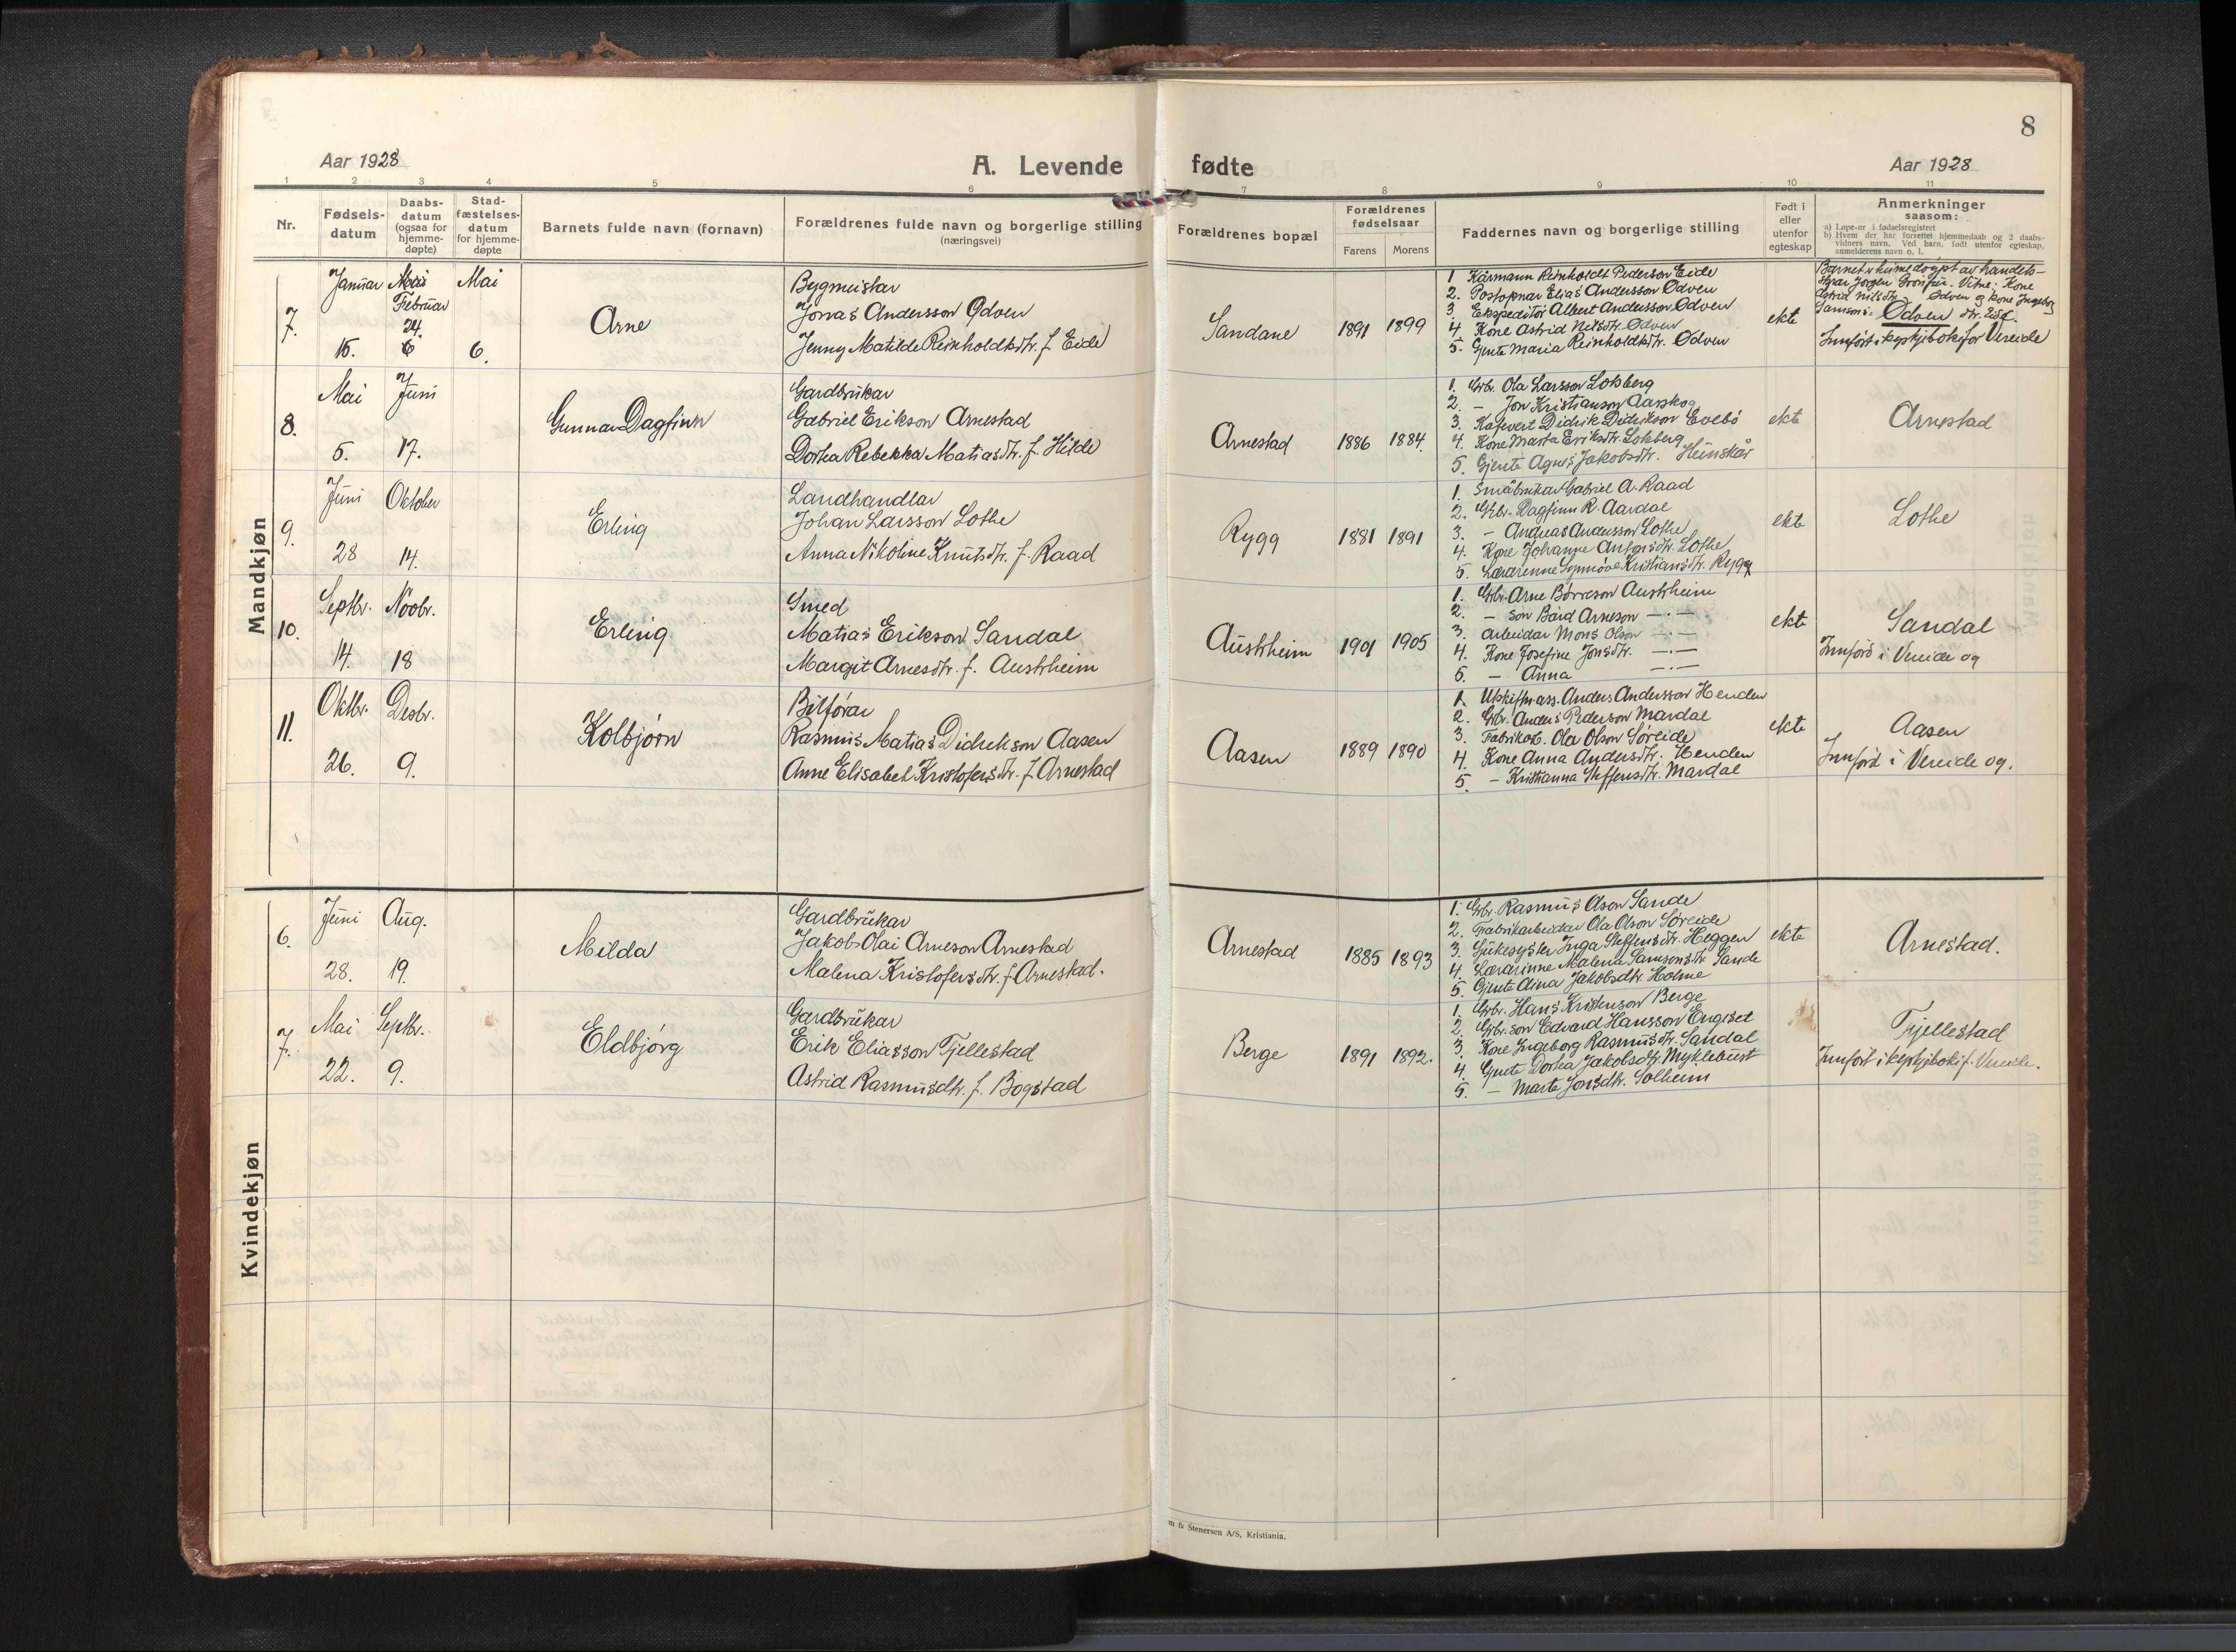 8
Aar 1928
A. Levende fødte
Aar 1928
1 2 3 4 5 6 7 8 9 10 11
Nr.
Fødsels-
datum
Daabs-
datum
(ogsaa for
hjemme-
døpte)
Stad-
fæstelses-
datum
for hjemme-
døpte
Barnets fulde navn (fornavn)
Forældrenes fulde navn og borgerlige stilling
(næringsvei)
Forældrenes bopæl
Forældrenes
fødselsaar
Farens Morens
Faddernes navn og borgerlige stilling
Født i
eller
utenfor
egteskap
Anmerkninger
saasom:
a) Løpe-nr i fødselsregistret
b) Hvem der har forrettet hjemmedaab og 2 daabs-
vidners navn. Ved barn, født utenfor egteskap,
anmelderens navn o. l.
Mandkjøn
7.
Januar
15.
Mai
Februar
24.
6
Mai
6.
Arne
Bygmeistar
Jonas Andersson Ødven
Jenny Matilde Reinholdtsdtr. f. Eide
Sandane
1891 1899
1 Kårmann Reinholdt Pederson Eide
2. Postopnar Elias Andersson Ødven
3. Ekspeditör Albert Andersson Ødven
4 Kone Astrid Nilsdtr. Ødven
5. Gjenta Maria Reinholdtsdtr. Ødven
ekte
Barnet heimedöypt av handels-
styrar Jörgen. Vitne: Kone
Astrid Nilsdtr. Ødven og kone Ingeborg
Samsons. Ødven
Innfört i kyrkjeboki for Vereide
8.
Mai
5.
Juni
17.
Gunnar Dagfinn
Gardbrukar
Gabriel Erikson Arnestad
Dortea Rebekka Matiasdtr. f. Hilde
Arnestad
1886 1884.
1. Gbr. Ola Larsson Lotsberg
2. — Jon Kristianson Aasskog
3. Kafevert Didrik Didrikson Evebö
4. Kone Marta Eriksdtr. Lotsberg
5. Gjenta Agnes Jakobsdtr. Heimskår
ekte
Arnestad
9.
Juni
28
Oktober
14.
Erling
Landhandlar
Johan Larsson Lothe
Anna Nikoline Knutsdtr. f. Raad
Rygg
1881 1891
1. Småbrukar Gabriel A. Raad
2. Gbr. Dagfinn R. Aardal
3. — Andreas Andersson Lothe
4. Kone Johanne Antonsdtr. Lothe
5. Lærarinne Synnöve Kristiansdtr. Rygg
ekte
Lothe
10.
Septbr.
14.
Novbr.
18
Erling
Smed
Matias Erikson Sandal
Margit Arnesdtr. f. Austrheim
Austrheim
1901 1905
1. Gbr. Arne Børreson Austrheim
2. — son Bård Arneson —.—
3. Arbeidar Mons Olson —.—
4. Kone Josefine Jonsdtr. —.—
5. — Anna —.—
ekte
Sandal
Innförd i Vereide og
11.
Oktbr.
26.
Desbr.
9.
Kolbjørn
Bilförar
Rasmus Matias Didrikson Aasen
Anne Elisabet Kristofersdtr. f. Arnestad
Aasen
1889 1890
1. Utskiftn.ass. Anders Andersson Henden
2. Gbr. Anders Pederson Mardal
3. Fabrikarb. Ola Olson Søreide
4. Kone Anna Andersdtr. Henden
5. — Kristianna Steffensdtr. Mardal
ekte
Aasen
Innförd i Vereide og.
Kvindekjøn
6.
Juni
28.
Aug.
19.
Milda
Gardbrukar
Jakob Olai Arneson Arnestad
Malena Kristofersdtr. f. Arnestad.
Arnestad
1885 1893
1. Gbr. Rasmus Olson Sande
2. Fabrikarbeidar Ola Olson Søreide
3. Sjukesyster Inga Steffensdtr. Heggen
4. Lærarinne Malena Samsonsdtr. Sande
5. Gjenta Alina Jakobsdtr. Holme
ekte
Arnestad.
7.
Mai
22.
Septbr.
9.
Eldbjørg
Gardbrukar
Erik Eliasson Fjellestad
Astrid Rasmusdtr. f. Bogstad
Berge
1891 1892.
1. Gbr. Hans Kristenson Berge
2. Gbr. son Edvard Hansson Engiset
3. Kone Ingeborg Rasmusdtr. Sandal
4. Gjenta Dortea Jakobsdtr. Myklebust
5. — Marta Jonsdtr. Solheim
Fjellestad
Innfört i kyrkjeboki f. Vereide.
m & Stenersen A/S, Kristiania.